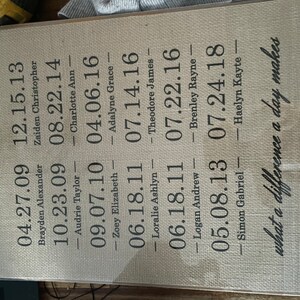 04.27.09
Brayden Alexander
10.23.09
— Audrie Taylor —
09.07.10
— Zoey Elizabeth —
06.18.11
— Loralie Ashlyn —
06.18.11
— Logan Andrew —
05.08.13
— Simon Gabriel —
12.15.13
Zaiden Christopher
08.22.14
— Charlotte Ann —
04.06.16
— Adalyne Grace —
07.14.16
— Theodore James —
07.22.16
— Brenley Rayne —
07.24.18
— Haelyn Kayte —
what a difference a day makes